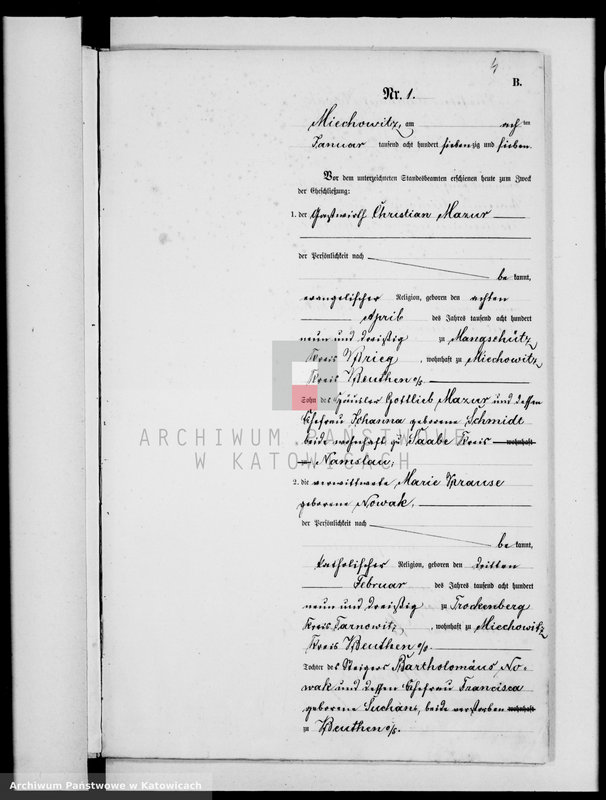 4
B.
Nr. 1.
Miechowitz, am acht ten
Januar tausend acht hundert siebenzig und sieben.
Vor dem unterzeichneten Standesbeamten erschienen heute zum Zweck
der Eheschließung:
1. der Gastwirth Christian Mazur
der Persönlichkeit nach
be kannt,
evangelischer Religion, geboren den achten
April des Jahres tausend acht hundert
neun und dreißig zu Mangschütz
Kreis Brieg, wohnhaft zu Miechowitz
Kreis Beuthen o/s.
Sohn des Häusler Gottlieb Mazur und dessen
Ehefrau Johanna geborene Schmidt
beide wohnhaft zu Saabe Kreis wohnhaft
Namslau;
ARCHIWUM PAŃSTWOWE
W KATOWICACH
2. die verwittwete Marie Krause
geborene Nowak,
der Persönlichkeit nach
be kannt,
katholischer Religion, geboren den dritten
Februar des Jahres tausend acht hundert
neun und dreißig zu Trockenberg
Kreis Tarnowitz, wohnhaft zu Miechowitz
Kreis Beuthen o/s.
Tochter des Steigers Bartholomäus No-
wak und dessen Ehefrau Francisca
geborene Suchan, beide verstorben wohnhaft
zu Beuthen o/s.
Archiwum Państwowe w Katowicach